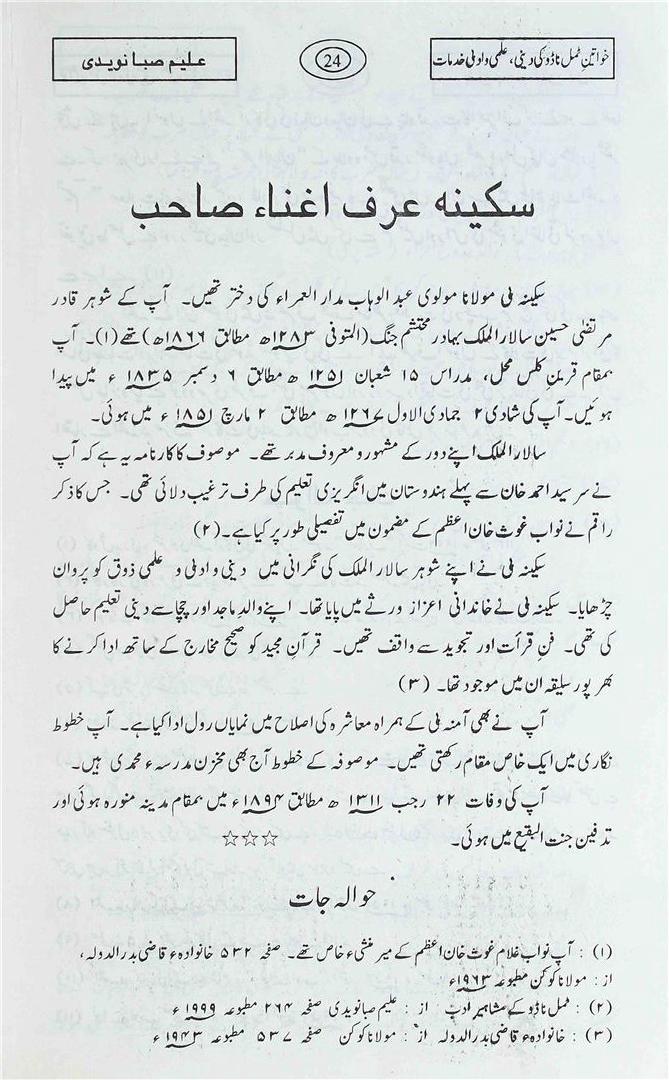 خواتینِ ٹمل ناڈو کی دینی، علمی و ادبی خدمات
24
علیم صبا نویدی
سکینہ عرف اغناء صاحب
سکینہ بی مولانا مولوی عبد الوہاب مدار العمراء کی دختر تھیں۔ آپ کے شوہر قادر
مرتضیٰ حسین سالار الملک بہادر محتشم جنگ (المتوفی ۱۲۸۳ھ مطابق ۱۸۶۶ھ) تھے (۱)۔ آپ
بمقام قرمنِ کلس محل، مدراس ۱۵ شعبان ۱۲۵۱ ھ مطابق ۶ دسمبر ۱۸۳۵ ء میں پیدا
ہوئیں۔ آپ کی شادی ۲ جمادی الاول ۱۲۶۷ ھ مطابق ۲ مارچ ۱۸۵۱ ء میں ہوئی۔
سالار الملک اپنے دور کے مشہور و معروف مدبر تھے۔ موصوف کا کارنامہ یہ ہے کہ آپ
نے سر سید احمد خان سے پہلے ہندوستان میں انگریزی تعلیم کی طرف ترغیب دلائی تھی۔ جس کا ذکر
راقم نے نواب غوث خان اعظم کے مضمون میں تفصیلی طور پر کیا ہے۔ (۲)
سکینہ بی نے اپنے شوہر سالار الملک کی نگرانی میں دینی و ادبی و علمی ذوق کو پروان
چڑھایا۔ سکینہ بی نے خاندانی اعزاز ورثے میں پایا تھا۔ اپنے والدِ ماجد اور چچا سے دینی تعلیم حاصل
کی تھی۔ فنِ قرأت اور تجوید سے واقف تھیں۔ قرآنِ مجید کو صحیح مخارج کے ساتھ ادا کرنے کا
بھرپور سلیقہ ان میں موجود تھا۔ (۳)
آپ نے بھی آمنہ بی کے ہمراہ معاشرہ کی اصلاح میں نمایاں رول ادا کیا ہے۔ آپ خطوط
نگاری میں ایک خاص مقام رکھتی تھیں۔ موصوفہ کے خطوط آج بھی مخزن مدرسہء محمدی ہیں۔
آپ کی وفات ۲۲ رجب ۱۳۱۱ ھ مطابق ۱۸۹۴ ء میں بمقام مدینہ منورہ ہوئی اور
تدفین جنت البقیع میں ہوئی۔ ☆☆☆
حوالہ جات
(۱) : آپ نواب غلام غوث خان اعظم کے میر منشیء خاص تھے۔ صفحہ ۵۳۲ خانوادہء قاضی بدر الدولہ،
از : مولانا کوکن مطبوعہ ۱۹۶۳ء
(۲) : ٹمل ناڈو کے مشاہیر ادب از : علیم صبا نویدی صفحہ ۲۶۴ مطبوعہ ۱۹۹۹ ء
(۳) : خانوادہء قاضی بدر الدولہ از : مولانا کوکن صفحہ ۵۳۷ مطبوعہ ۱۹۴۳ ء